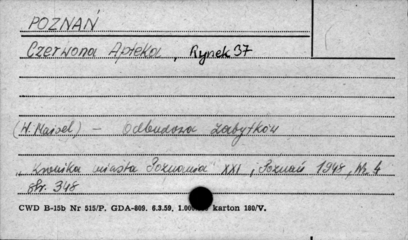 POZNAŃ
Czerwona Apteka, Rynek 37
(W. Maisel) - Odbudowa zabytków
"Kronika miasta Poznania" XXI, Poznań 1948, Nr. 4
str. 348
CWD B-15b Nr 515/P. GDA-809. 6.3.59. karton 180/V.